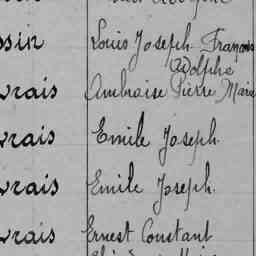 ssin Louis Joseph François
Adolphe
vrais Ambroise Pierre Marie
vrais Emile Joseph
vrais Emile Joseph
vrais Ernest Constant